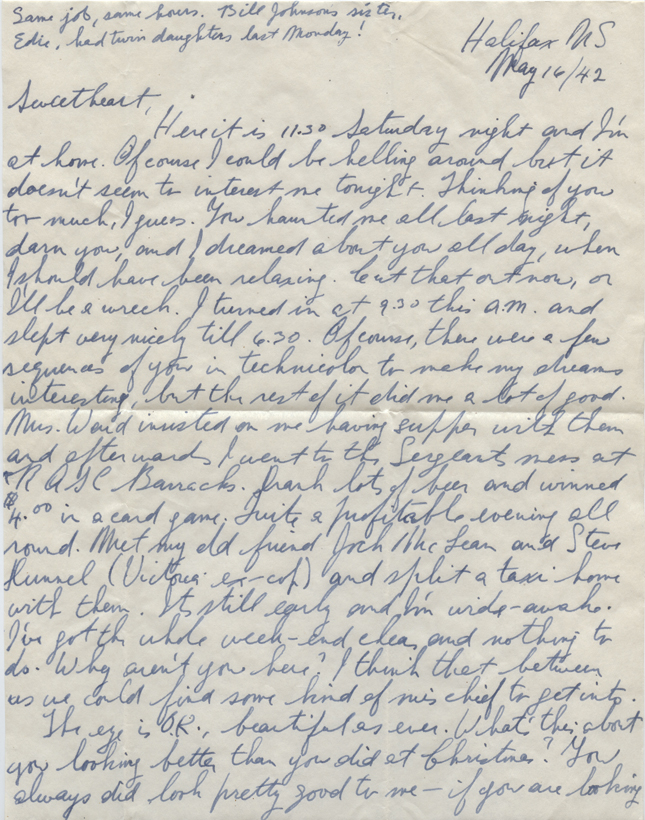 Same job, same hours. Bill Johnsons sister,
Edie, had twin daughters last Monday!
Halifax NS
May 16/42
Sweetheart,
Here it is 11.30 Saturday night and I'm
at home. Ofcourse I could be helling around but it
doesn't seem to interest me tonight. Thinking of you
too much, I guess. You haunted me all last night,
darn you, and I dreamed about you all day, when
I should have been relaxing. Cut that out now, or
I'll be a wreck. I turned in at 9.30 this a.m. and
slept very nicely till 6.30. Ofcourse, there were a few
sequences of you in technicolor to make my dreams
interesting, but the rest of it did me a lot of good.
Mrs. Ward insisted on me having supper with them
and afterwards I went to the Sergeants mess at
Barracks. Drank lots of beer and winned
$4.00 in a card game. Quite a profitable evening all
round. Met my old friend Jock McLean and Steve
Runnel (Victoria ex-cop) and split a taxi home
with them. Its still early and I'm wide-awake.
I've got the whole week-end clear and nothing to
do. Why aren't you here? I think that between
us we could find some kind of mischief to get into.
The eye is O.K., beautiful as ever. What's this about
you looking better than you did at Christmas? You
always did look pretty good to me – if you are looking